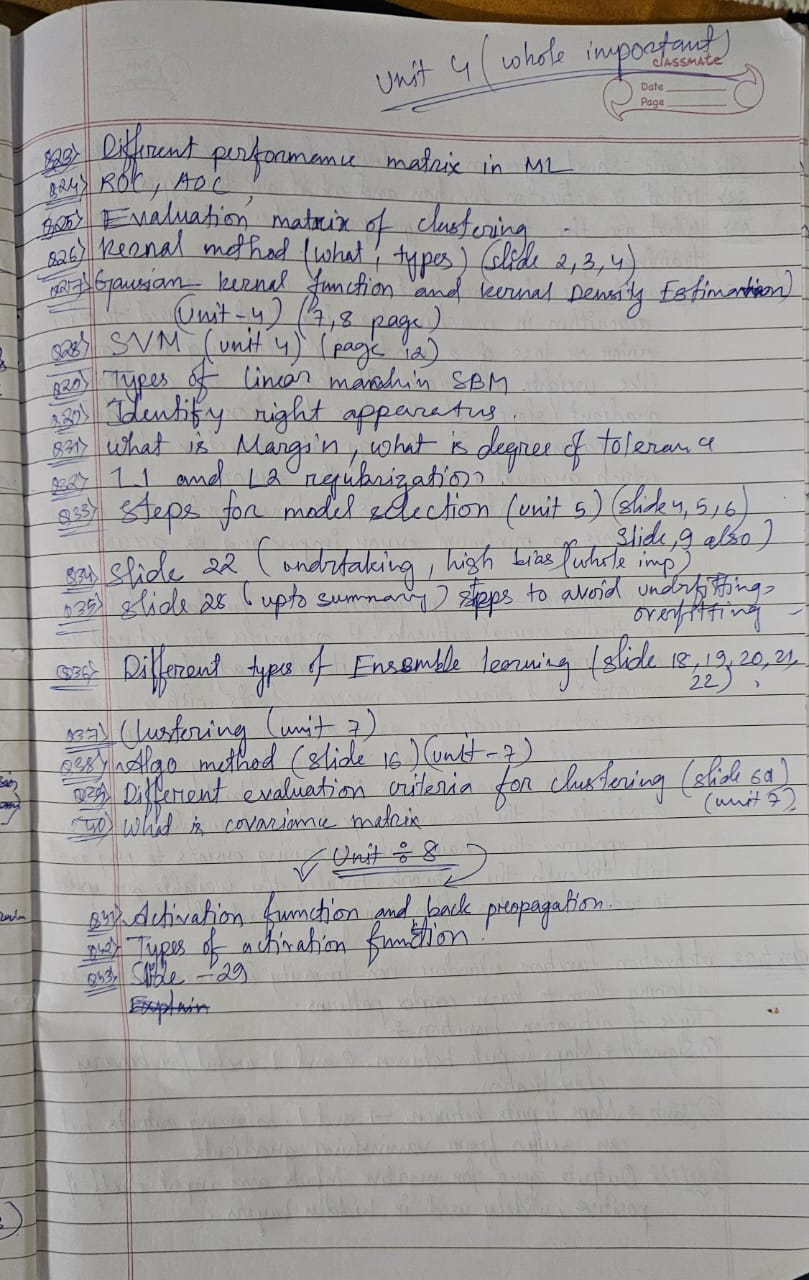 Unit 4 (whole important)
CLASSMATE
Date
Page
Q23> Different performance matrix in ML
Q24> ROC, AOC
Q25> Evaluation matrix of clustering
Q26> Kernal method (what, types) (slide 2,3,4)
Q27> Gaussian kernal function and kernal Density Estimation)
(Unit-4) (7,8 page)
Q28> SVM (unit 4) (page 12)
Types of linear SBM
Identify right apparatus.
Q31> what is Margin, what is degree of tolerance
Q32> L1 and L2 regularization
Q33> Steps for model selection (unit 5) (slide 4,5,6)
slide, 9 also)
Q34> Slide 22 (, high bias (whole imp)
Q35> slide 28 (upto summary) steps to avoid undrfitting,
overfitting
Q36> Different types of Ensemble learning (slide 18,19,20,21,
22)
Q37> Clustering (unit 7)
Q38> Algo method (slide 16) (unit-7)
Q39> Different evaluation criteria for clustering (slide 69)
(unit 7)
Q40> What is covariance matrix
Unit ÷ 8
Q41> Activation function and back propagation.
Q42> Types of activation function.
Q43> Slide - 29
Explain